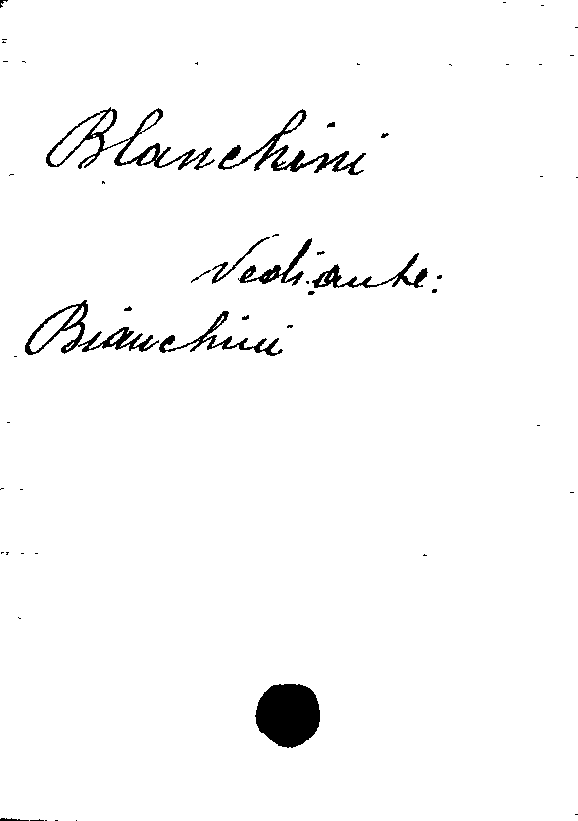 Blanchini
Vedi anche:
Bianchini